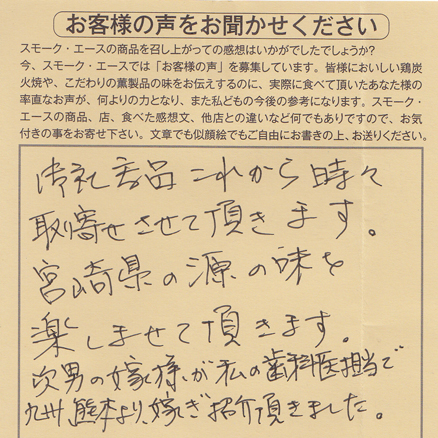 お客様の声をお聞かせください
スモーク・エースの商品を召し上がっての感想はいかがでしたでしょうか?
今、スモーク・エースでは「お客様の声」を募集しています。皆様においしい鶏炭
火焼や、こだわりの薫製品の味をお伝えするのに、実際に食べて頂いたあなた様の
率直なお声が、何よりの力となり、また私どもの今後の参考になります。スモーク・
エースの商品、店、食べた感想文、他店との違いなど何でもありですので、お気
付きの事をお寄せ下さい。文章でも似顔絵でもご自由にお書きの上、お送りください。
御社 商品 これから時々
取寄せさせて頂きます。
宮崎県の源の味を
楽しませて頂きます。
次男の嫁様が私の歯科医担当で
九州、熊本より、嫁ぎ紹介頂きました。